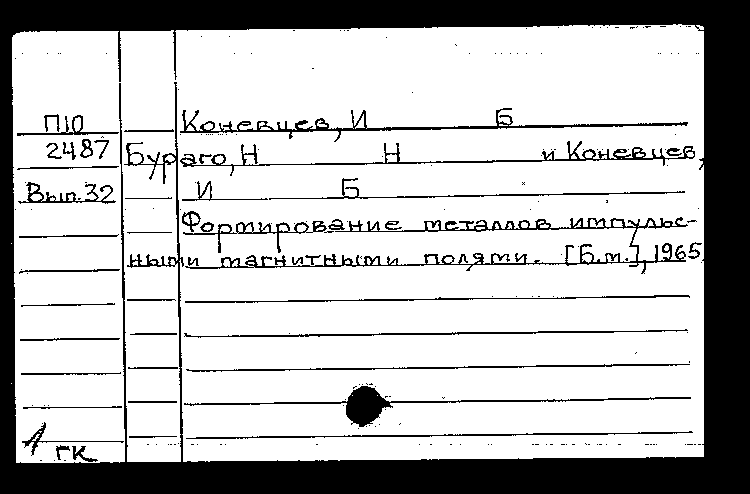 П10 Коневцев, И Б
2487 Бураго, Н Н и Коневцев,
Вып. 32 И Б
Формирование металлов импульс-
ными магнитными полями. [Б.м.], 1965.
1 ГК